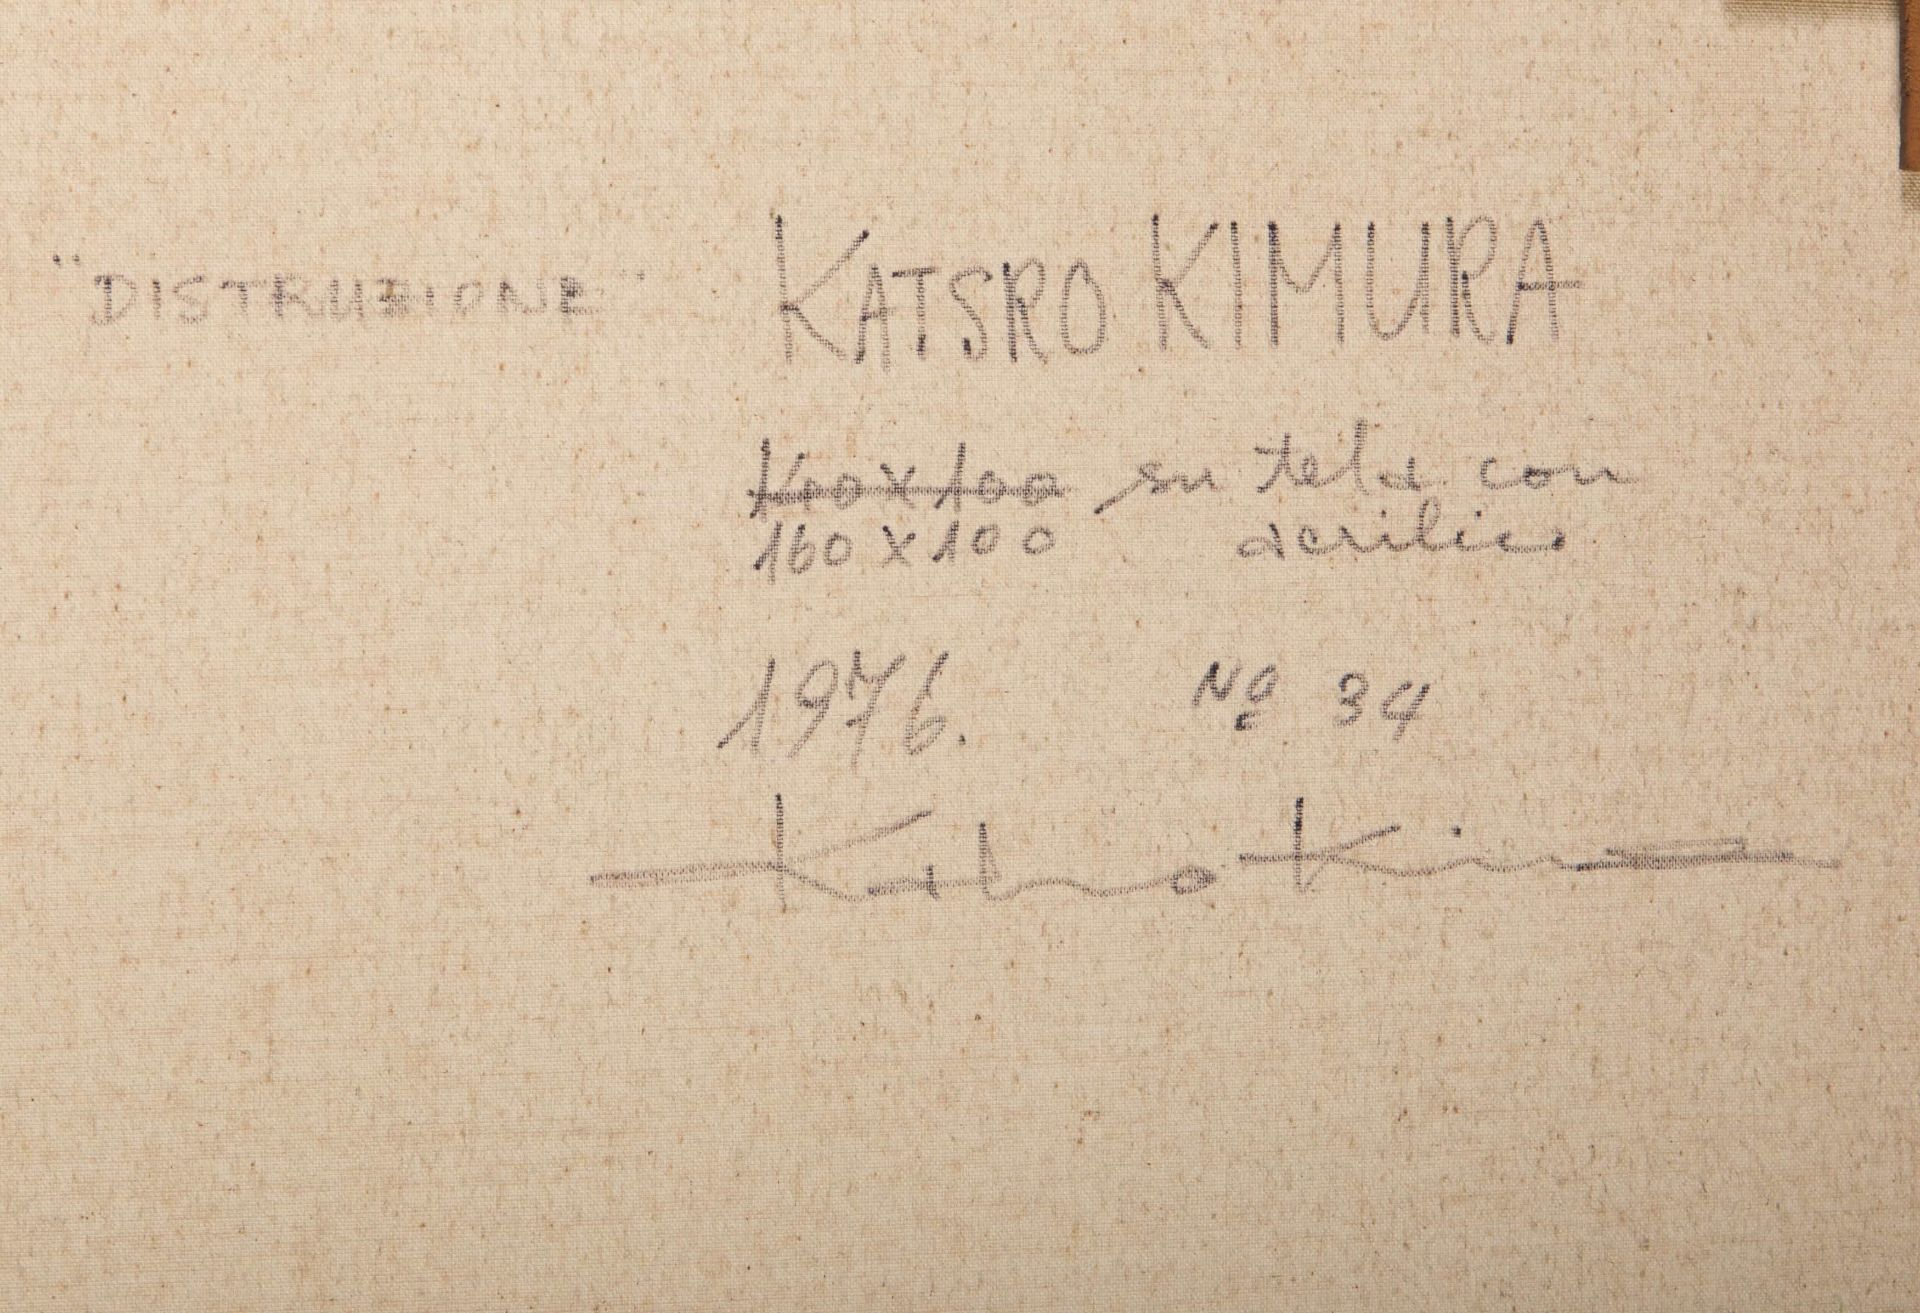 "DISTRUZIONE" KATSRO KIMURA
140x100 su tela con
160x100 acrilico
1976. No 34
Katsro Kimura